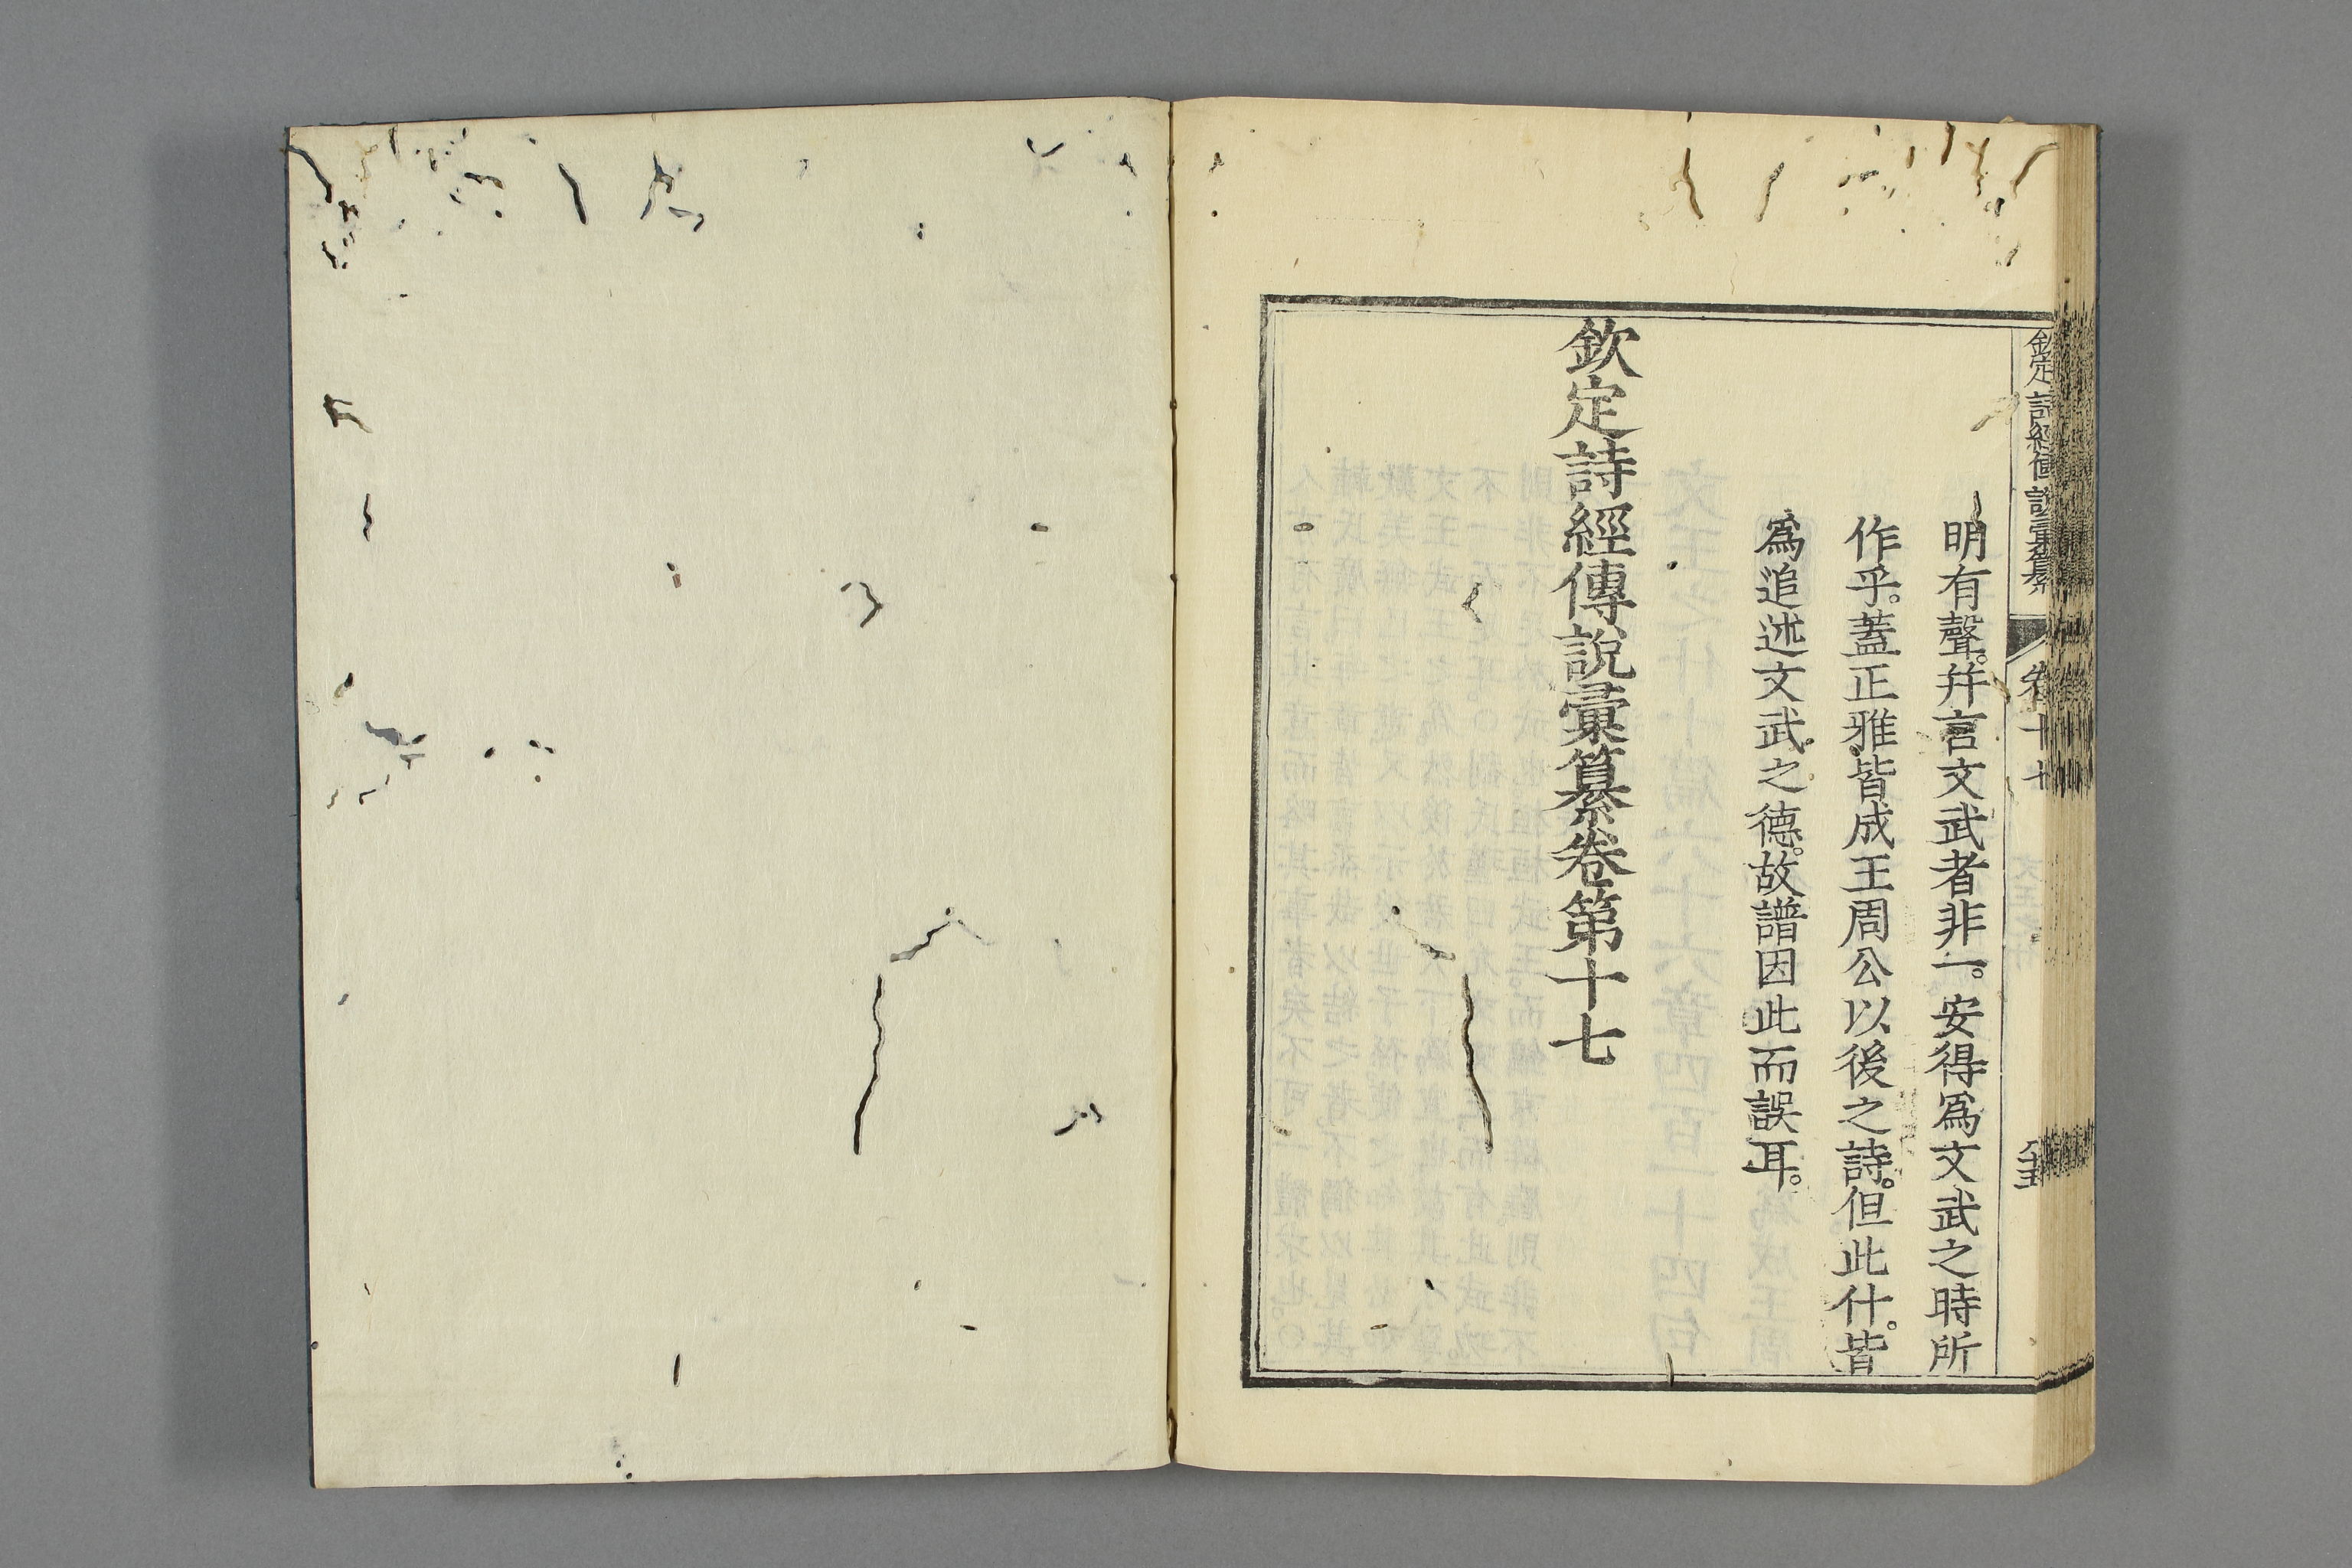 欽定詩經傳說彙纂 卷十七
明有聲。幷言文武者非一。安得爲文武之時所
作乎。蓋正雅皆成王周公以後之詩。但此什。皆
爲追述文武之德。故譜因此而誤耳。
欽定詩經傳說彙纂卷第十七